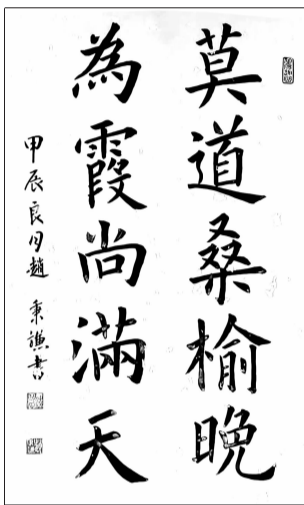 莫道桑榆晚
為霞尚滿天
甲辰良月趙秉謙書